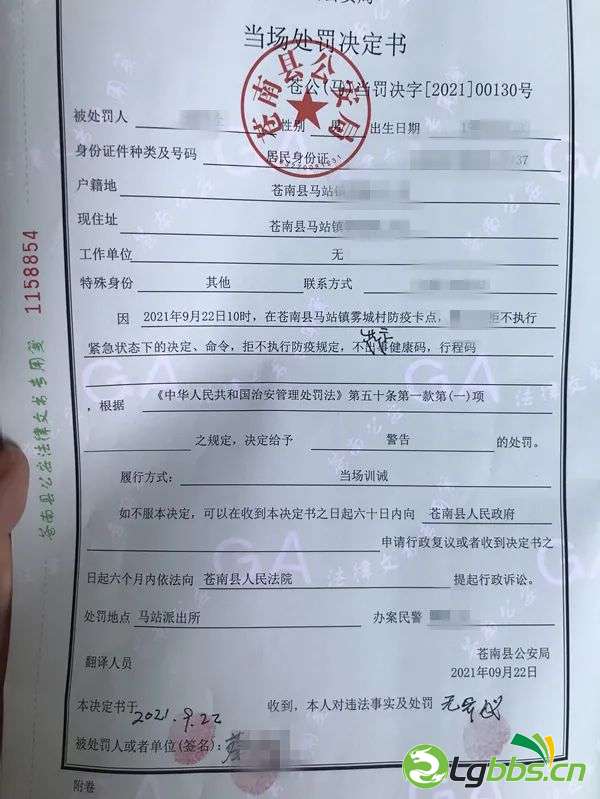 公安局
当场处罚决定书
苍公(马)当罚决字[2021]00130号
被处罚人 性别 男 出生日期 1
身份证件种类及号码 居民身份证 37
户籍地 苍南县马站镇
现住址 苍南县马站镇
工作单位 无
特殊身份 其他 联系方式
因 2021年9月22日10时，在苍南县马站镇雾城村防疫卡点， 拒不执行
紧急状态下的决定、命令，拒不执行防疫规定，不出示健康码，行程码
，根据 《中华人民共和国治安管理处罚法》第五十条第一款第(一)项
之规定，决定给予 警告 的处罚。
履行方式： 当场训诫
如不服本决定，可以在收到本决定书之日起六十日内向 苍南县人民政府
申请行政复议或者收到决定书之
日起六个月内依法向 苍南县人民法院 提起行政诉讼。
处罚地点 马站派出所 办案民警
苍南县公安局
翻译人员 2021年09月22日
本决定书于 2021.9.22 收到，本人对违法事实及处罚 无异议
被处罚人或者单位(签名)：
附卷
苍南县公安局
1158854
苍南县公安法律文书专用笺
tgbbs.cn